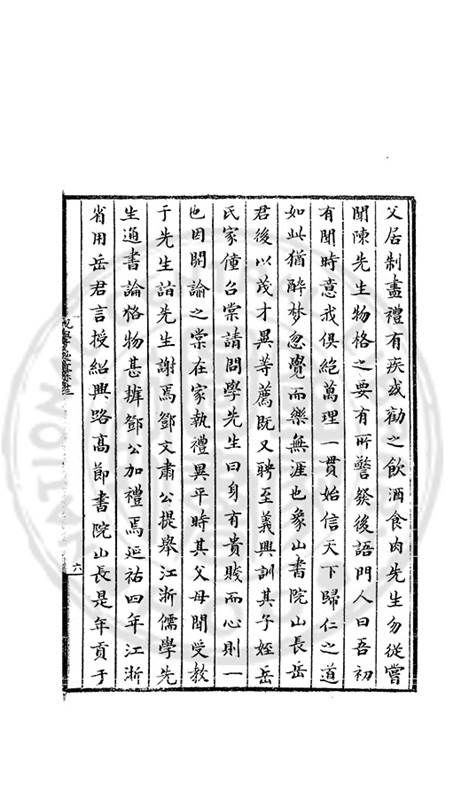 父居制盡禮有疾或勸之飲酒食肉先生勿從嘗
聞陳先生物格之要有所警發後語門人曰吾初
有聞時意我俱絕萬理一貫始信天下歸仁之道
如此猶醉夢忽覺而樂無涯也象山書院山長岳
君後以茂才異等薦既又聘至義興訓其子姪岳
氏家僮台棠請問學先生曰身有貴賤而心則一
也因開諭之棠在家執禮異平時其父母聞受教
于先生詣先生謝焉鄧文肅公提舉江浙儒學先
生通書論格物甚擀鄧公加禮焉延祐四年江浙
省用岳君言授紹興路高節書院山長是年貢于
六